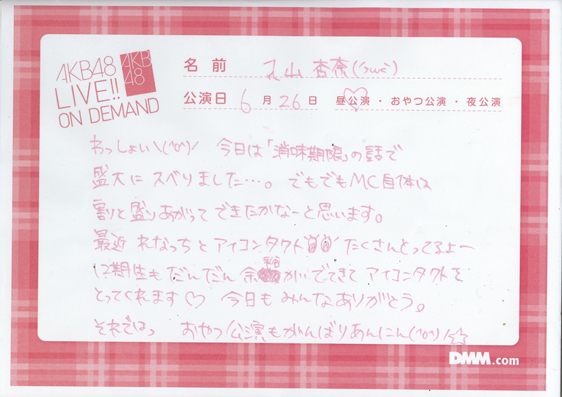 AKB48
LIVE!!
ON DEMAND
AKB
48
名前 丸山 杏奈(´ω`)
公演日 6月26日 昼公演・おやつ公演・夜公演
わっしょい\(^o^)/ 今日は「消味期限」の話で
盛大に スベりました…。でもでもMC自体は
割と盛りあがって できたかなーと思います。
最近 れなっちと アイコンタクト たくさんとってるよー
12期生も だんだん 余裕が でてきて アイコンタクトを
とってくれます♡ 今日も みんなありがとう。
それではっ おやつ公演もがんばりあんにん(^o^)/☆☆
DMM.com